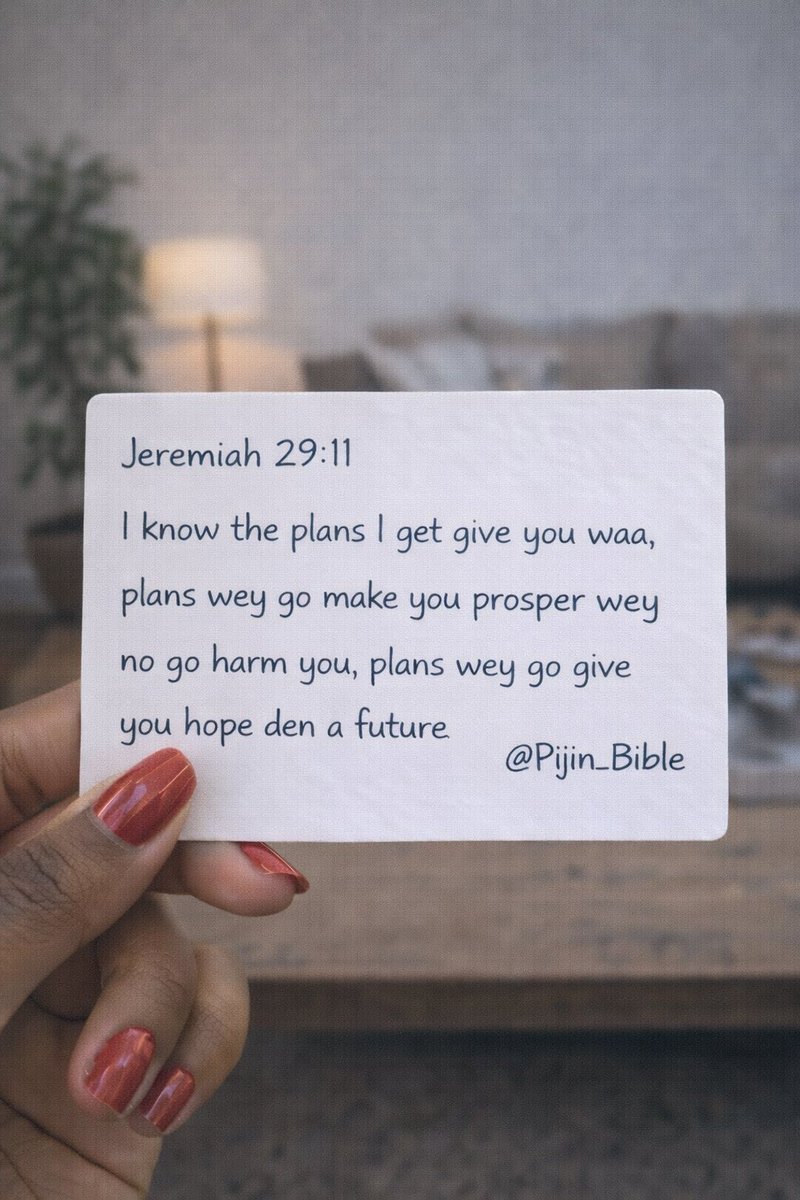 Jeremiah 29:11
I know the plans I get give you waa,
plans wey go make you prosper wey
no go harm you, plans wey go give
you hope den a future
@Pijin_Bible